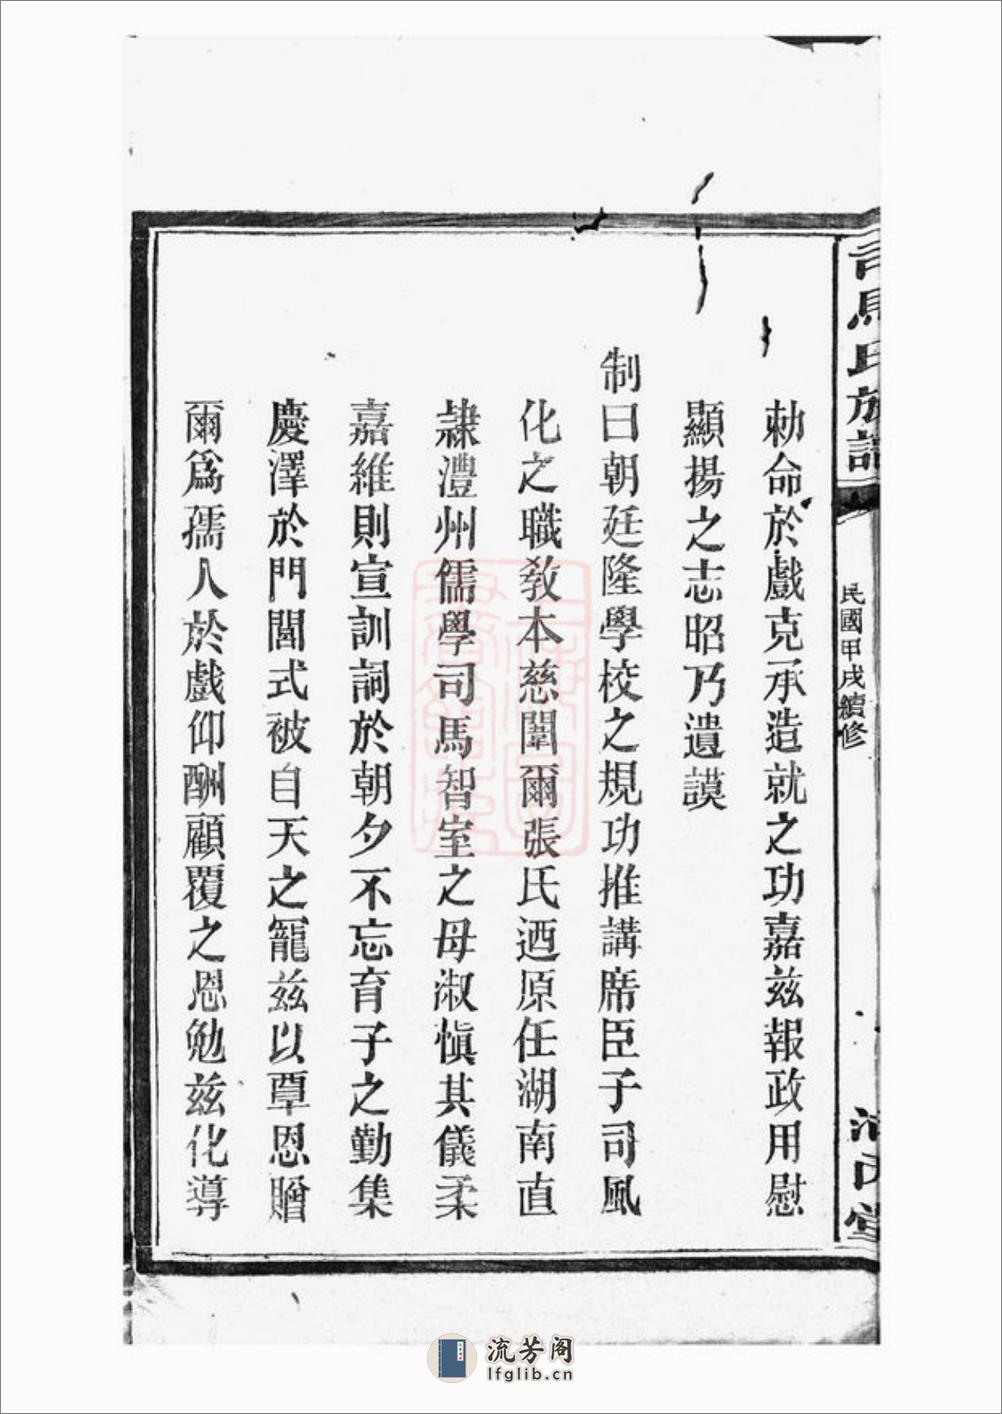 司馬氏族譜
民國甲戌續修
勅命於戲克承造就之功嘉兹報政用慰
顯揚之志昭乃遺謨
制曰朝廷隆學校之規功推講席臣子司風
化之職敎本慈闈爾張氏迺原任湖南直
隷澧州儒學司馬智室之母淑愼其儀柔
嘉維則宣訓詞於朝夕不忘育子之勤集
慶澤於門閭式被自天之寵兹以覃恩贈
爾爲孺人於戲仰酬顧覆之恩勉兹化導
流芳阁
lfglib.cn